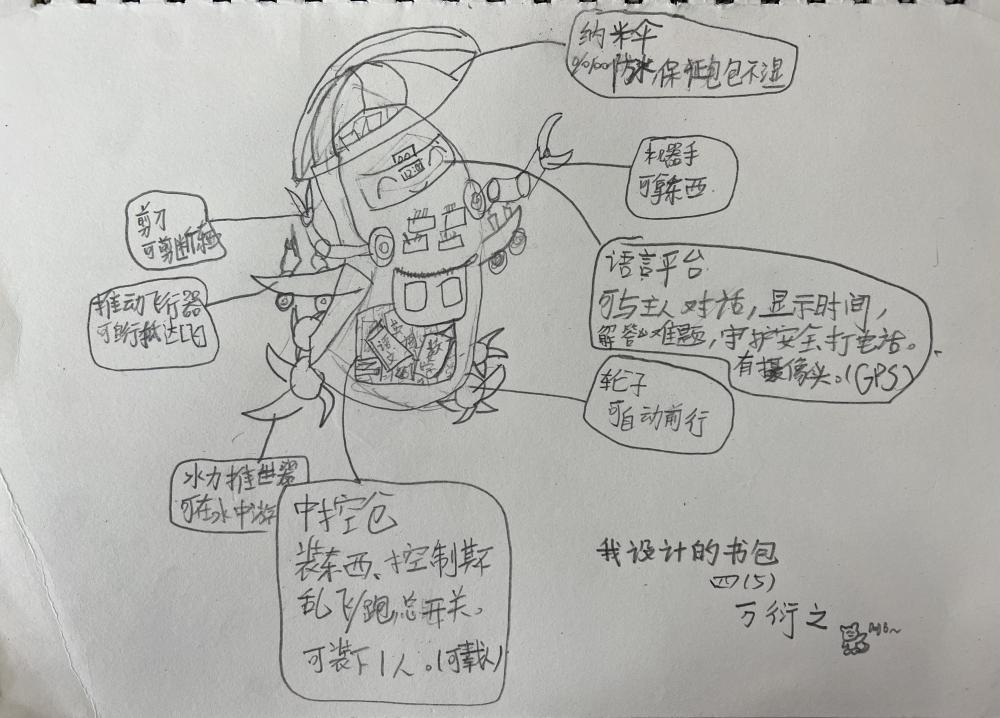 纳米伞
%100防水,保证包包不湿
机器手
可拿东西.
剪刀
可剪断东西
语言平台
可与主人对话,显示时间,
解答难题,守护安全,打电话。
有摄像头。(GPS)
推动飞行器
可飞行抵达
12:
轮子
可自动前行
语文
数
水力推进器
可在水中游
中控仓
装东西、控制其不
乱飞/跑总开关。
可装下1人。(可载人)
我设计的书包
四(5)
万衍之